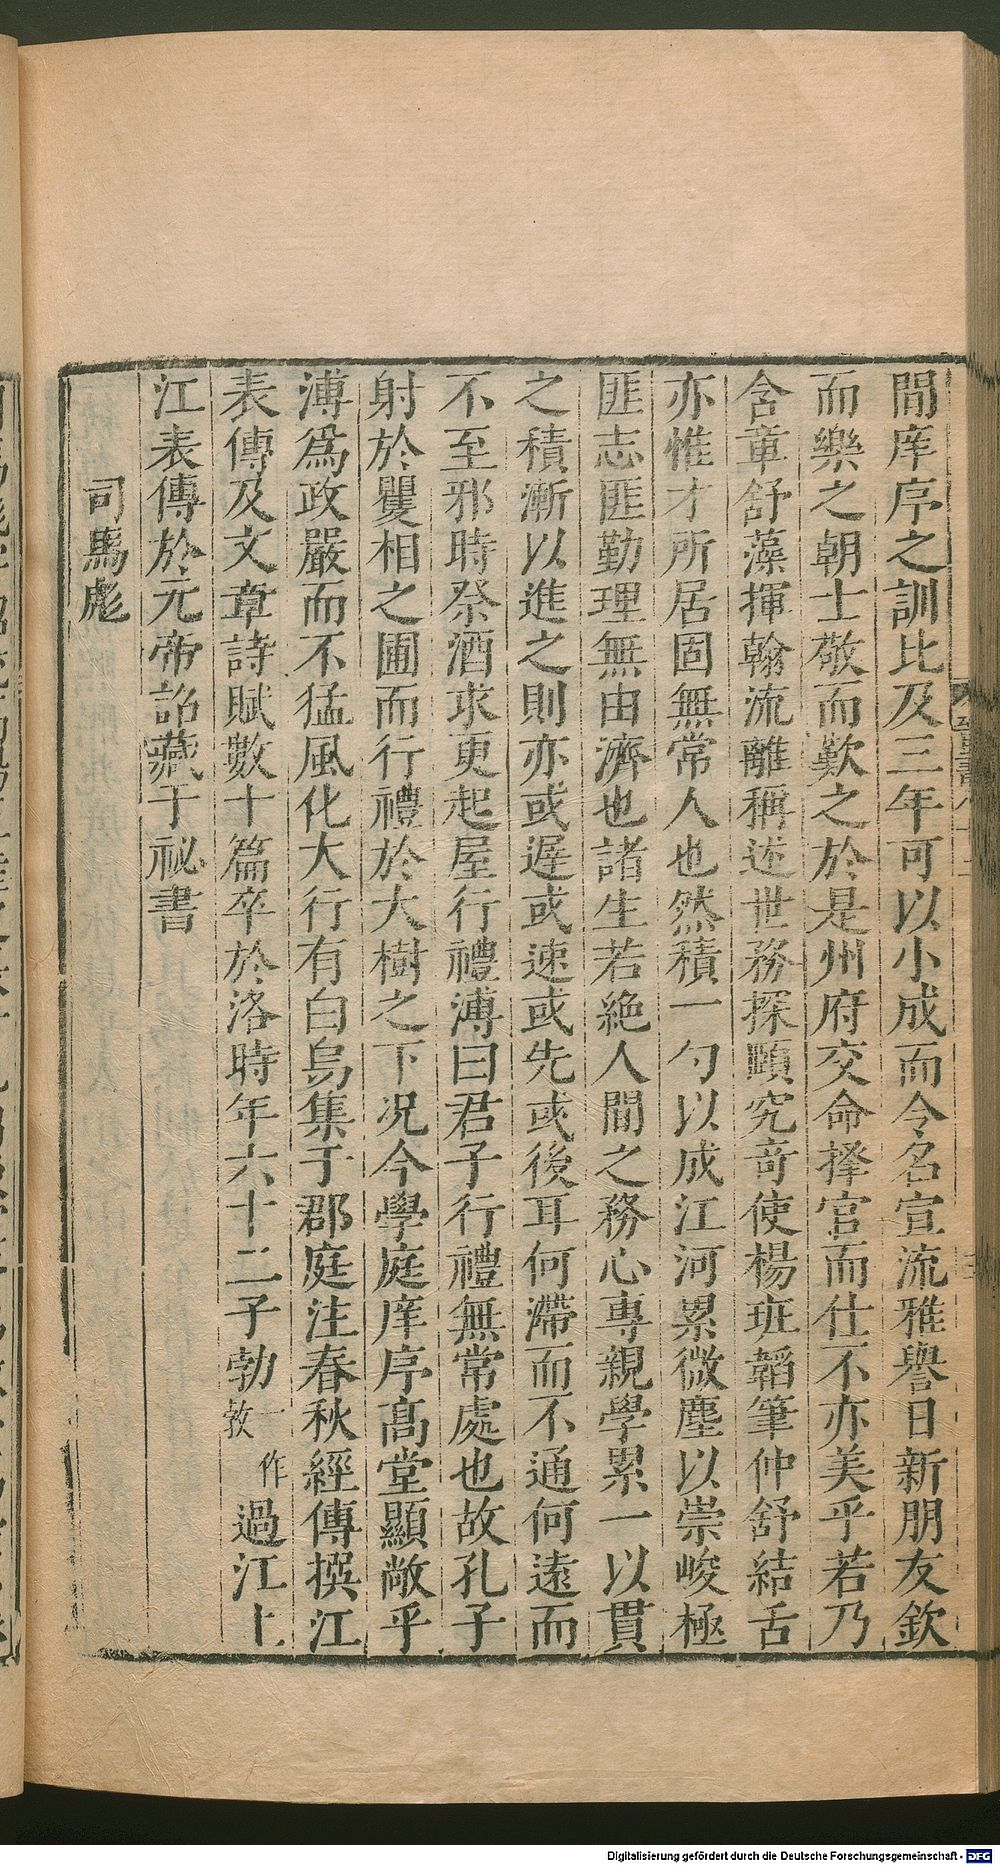 間庠序之訓比及三年可以小成而令名宣流雅譽日新朋友欽
而樂之朝士敬而歎之於是州府交命擇官而仕不亦美乎若乃
含章舒藻揮翰流離稱述世務探賾究奇使楊班韜筆仲舒結舌
亦惟才所居固無常人也然積一勺以成江河累微塵以崇峻極
匪志匪勤理無由濟也諸生若絶人間之務心專親學累一以貫
之積漸以進之則亦或遲或速或先或後耳何滯而不通何遠而
不至邪時祭酒求更起屋行禮溥曰君子行禮無常處也故孔子
射於矍相之圃而行禮於大樹之下况今學庭庠序髙堂顯敞乎
溥爲政嚴而不猛風化大行有白烏集于郡庭注春秋經傳撰江
表傳及文章詩賦數十篇卒於洛時年六十二子勃一作敦過江上
江表傳於元帝詔藏于祕書
司馬彪
Digitalisierung gefördert durch die Deutsche Forschungsgemeinschaft - DFG